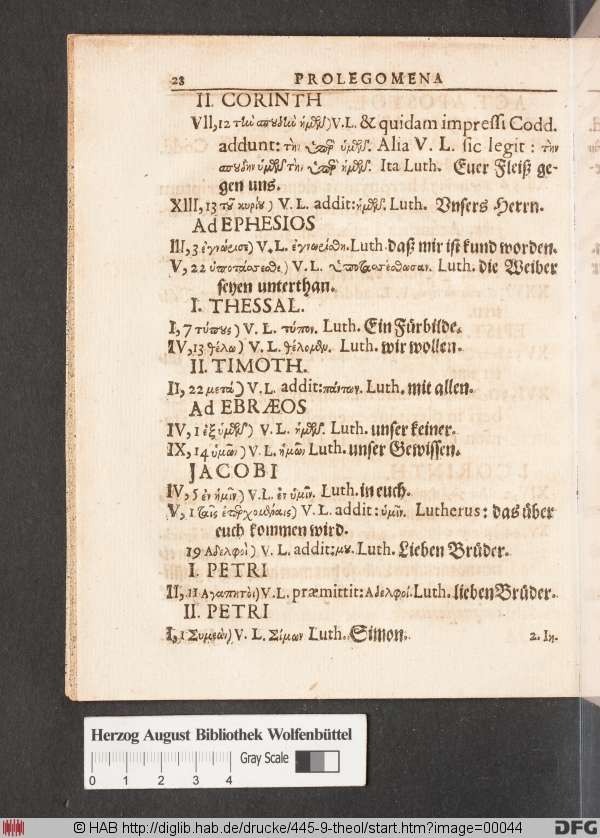 28 PROLEGOMENA
II. CORINTH
VII, 12 τὴν σπουδὴν ἡμῶν) V. L. & quidam impressi Codd.
addunt: τὴν ὑπὲρ ὑμῶν. Alia V. L. sic legit: τὴν
σπουδὴν ὑμῶν τὴν ὑπὲρ ἡμῶν. Ita Luth. Euer Fleiß ge-
gen uns.
XIII, 13 τοῦ κυρίου) V. L. addit: ἡμῶν. Luth. Unsers Herrn.
Ad EPHESIOS
III, 3 ἐγνώρισε) V. L. ἐγνωρίσθη. Luth. daß mir ist kund worden.
V, 22 ὑποτάσσεσθε) V. L. ὑποτασσέσθωσαν. Luth. die Weiber
seyen unterthan.
I. THESSAL.
I, 7 τύπους) V. L. τύπον. Luth. Ein Fürbilde.
IV, 13 θέλω) V. L. θέλομεν. Luth. wir wollen.
II. TIMOTH.
II, 22 μετὰ) V. L. addit: πάντων. Luth. mit allen.
Ad EBRÆOS
IV, 1 ἐξ ὑμῶν) V. L. ἡμῶν. Luth. unser keiner.
IX, 14 ὑμῶν) V. L. ἡμῶν Luth. unser Gewissen.
JACOBI
IV, 5 ἐν ἡμῖν) V. L. ἐν ὑμῖν. Luth. in euch.
V, 1 ταῖς ἐπερχομέναις) V. L. addit: ὑμῖν. Lutherus: das über
euch kommen wird.
19 Αδελφοὶ) V. L. addit: μου. Luth. Lieben Brüder.
I. PETRI
II, 11 Αγαπητοὶ) V. L. præmittit: Αδελφοί. Luth. lieben Brüder.
II. PETRI
I, 1 Συμεὼν) V. L. Σίμων Luth. Simon.
2. In-
Herzog August Bibliothek Wolfenbüttel
Gray Scale
0 1 2 3 4
© HAB http://diglib.hab.de/drucke/445-9-theol/start.htm?image=00044
DFG